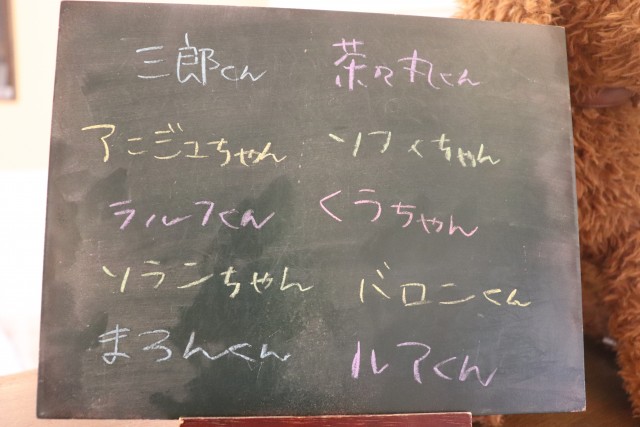 三郎くん 茶々丸くん
アンジュちゃん ソフィちゃん
ラルフくん くうちゃん
ソランちゃん バロンくん
まろんくん ルアくん